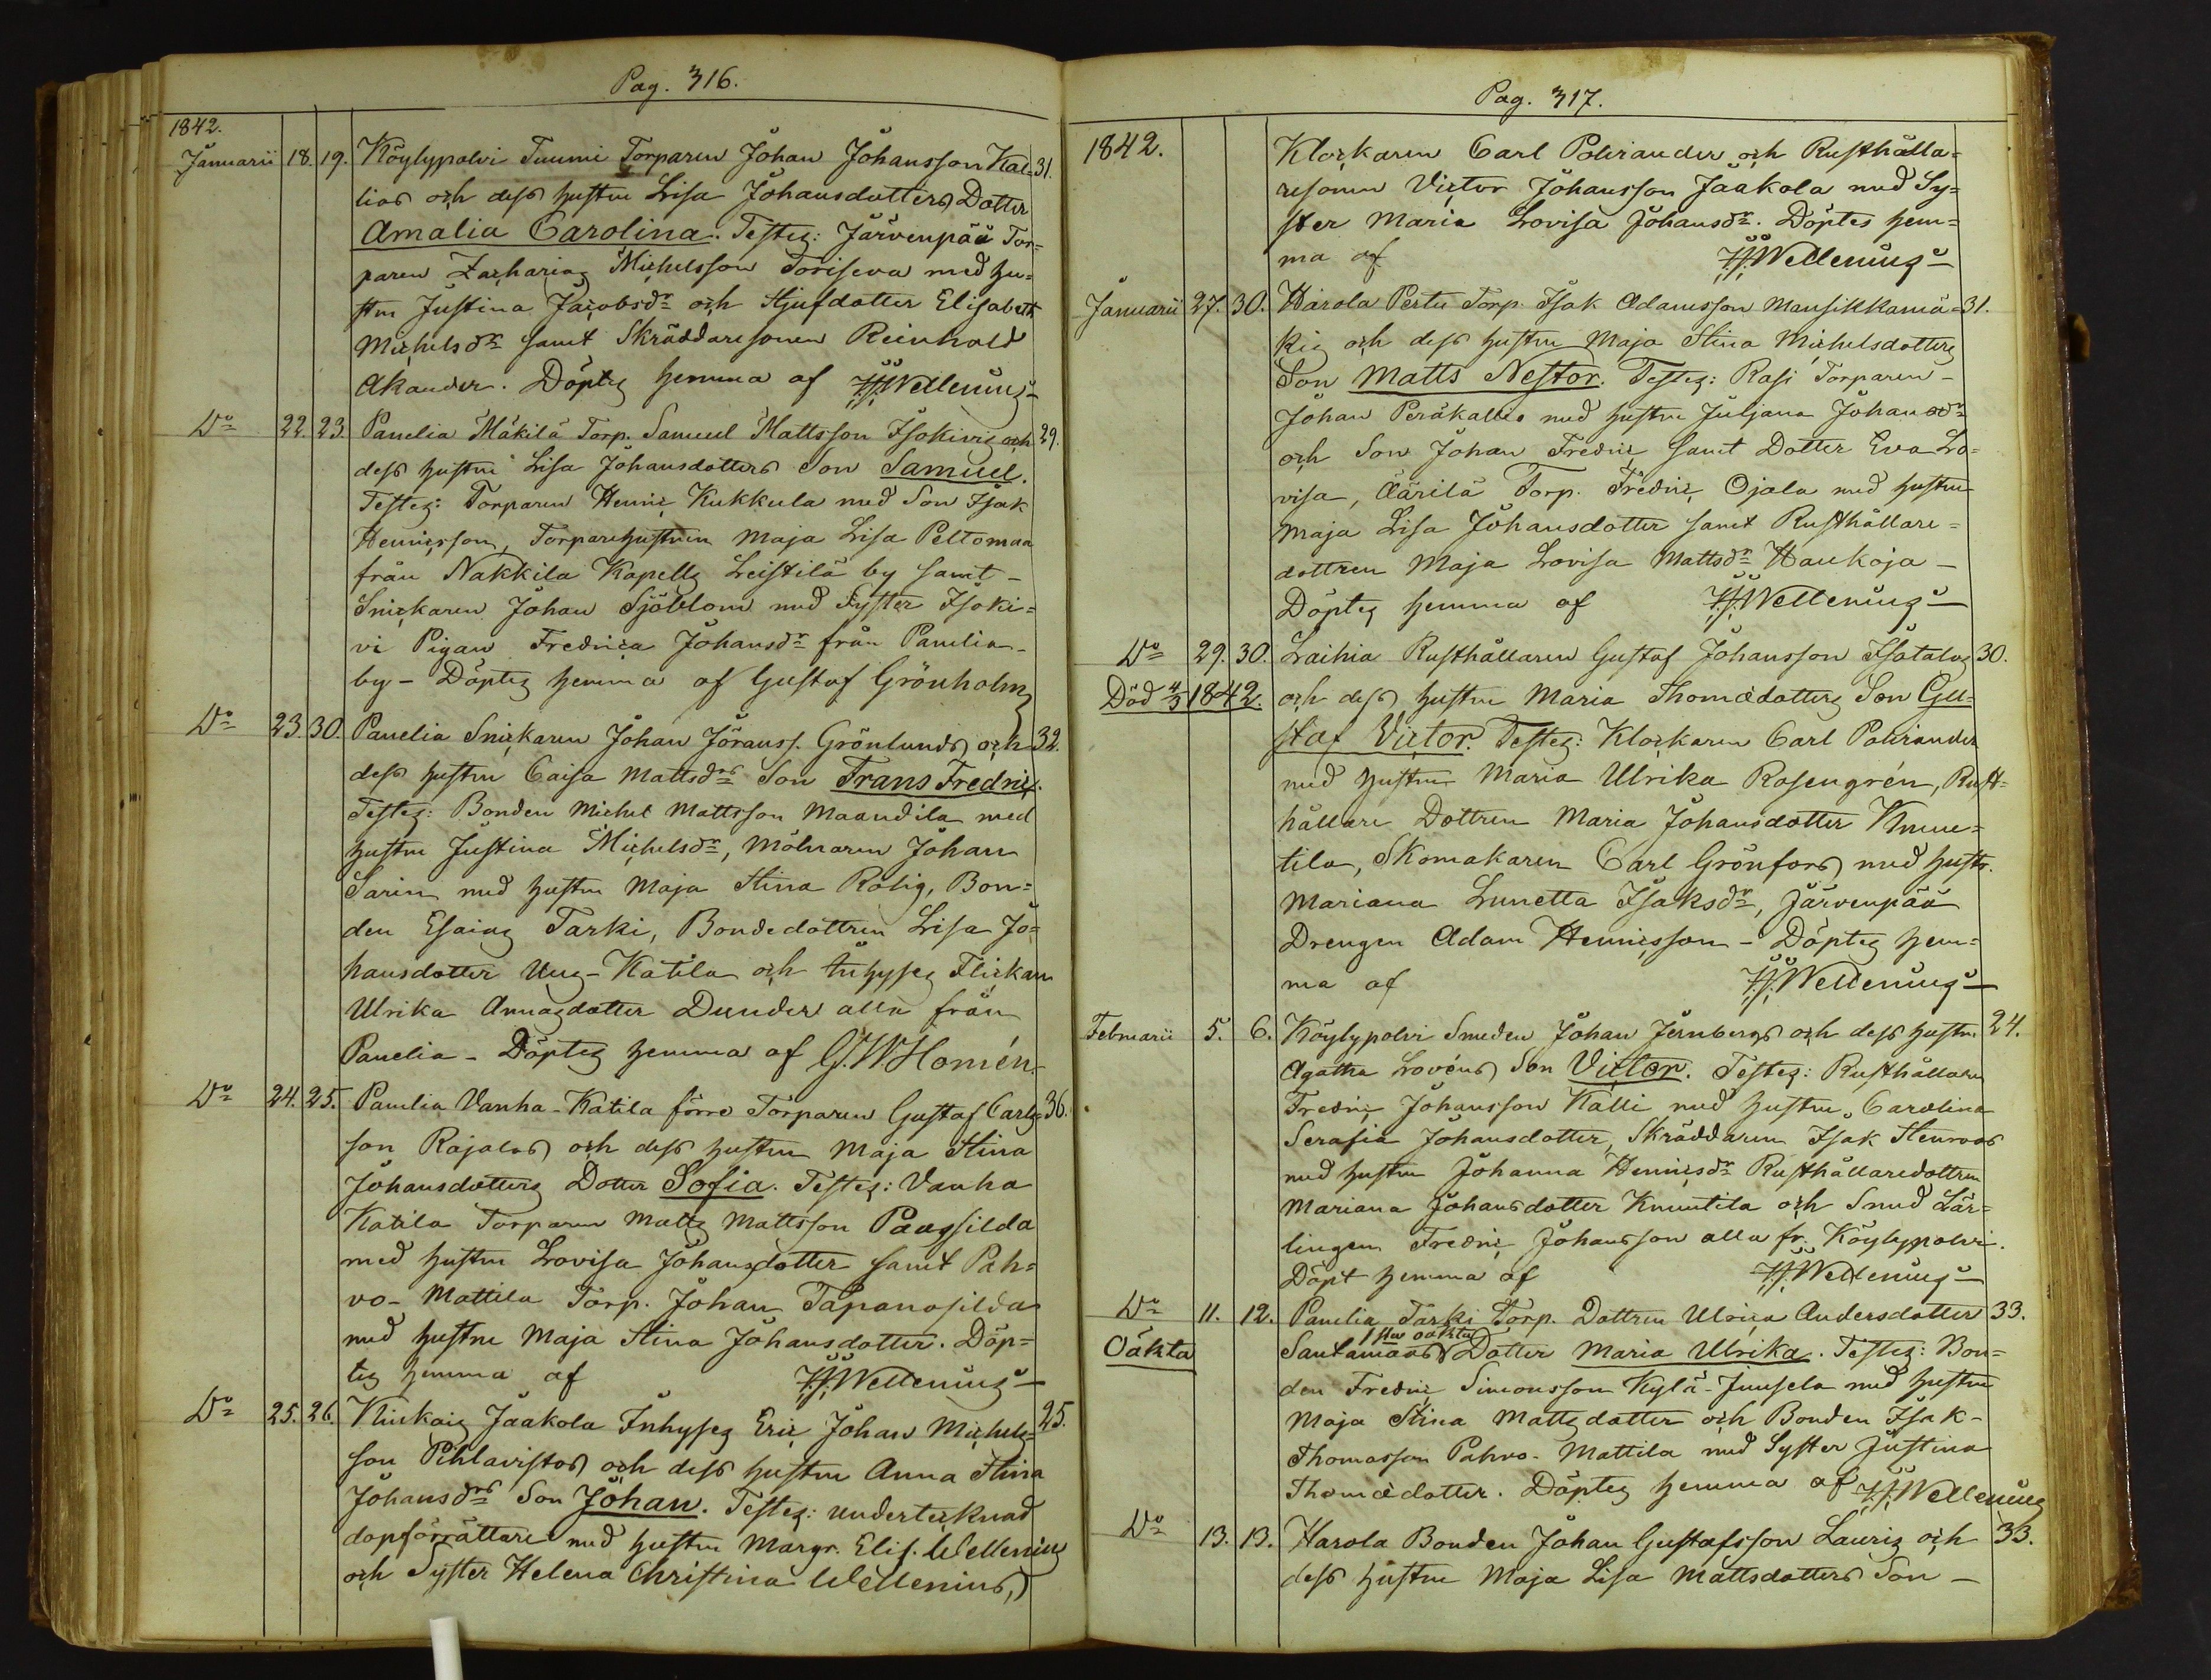 Pag. 316.
1842.
Januarii 18. 19. Köylypolvi Tuumi Torparen Johan Johansson Kal= 31.
lios och dess hustru Lisa Johansdotters Dotter
Amalia Carolina. Testes: Järvenpää Tor=
paren Zacharias Michelsson Toriseva med hu=
stru Justina Jacobsdr och Stjufdotter Elisabeth
Michelsdr samt Skräddaresonen Reinhold
Akander. Döptes hemma af H.H. Wellenius
Do 22. 23. Panelia Mäkilä Torp. Samuel Mattsson Isokivis och 29.
dess hustru Lisa Johansdotters Son Samuel.
Testes: Torparen Henric Kukkula med Son Isak
Henricsson, Torparehustrun Maja Lisa Peltomaa
från Nakkila Kapells Leistilä by samt
Snickaren Johan Sjöblom med Syster Isoki=
vi Pigan Fredrica Johansdr från Panelia
by – Döptes hemma af Gustaf Grönholm
Do 23. 30. Panelia Snickaren Johan Jöranss. Grönlunds och 32.
dess hustru Caisa Mattsdrs Son Frans Fredric.
Testes: Bonden Michel Mattsson Maandila med
hustru Justina Michelsdr, Mölnaren Johan
Sarin med hustru Maja Stina Rolig, Bon=
den Esaias Tarki, Bondedottren Lisa Jo=
hansdotter Uus-Katila och Inhyses Flickan
Ulrika Annasdotter Dunder alla från
Panelia – Döptes hemma af G.W. Homén.
Do 24. 25. Panelia Vanha-Katila förre Torparen Gustaf Carls= 36.
son Rajalas och dess hustru Maja Stina
Johansdotters Dotter Sofia. Testes: Vanha
Katila Torparen Matts Mattsson Paassilda
med hustru Lovisa Johansdotter samt Pah=
vo-Mattila Torp. Johan Tapanasilda
med hustru Maja Stina Johansdotter. Döp=
tes hemma af H.H. Wellenius
Do 25. 26. Kiukais Jaakola Inhyses Eric Johan Michels= 25.
son Pihlavistos och dess hustru Anna Stina
Johansdrs Son Johan. Testes: undertecknad
dopförrättare med hustru Margr. Elis. Wellenius
och Syster Helena Christina Wellenius,
Pag. 317.
1842. Klockaren Carl Polviander och Rusthålla=
resonen Victor Johansson Jaakola med Sy=
ster Maria Lovisa Johansdr. Döptes hem=
ma af H.H. Wellenius
Januarii 27. 30. Harola Pertu Torp. Isak Adamsson Mansikkamä= 31.
kis och dess hustru Maja Stina Michelsdotters
Son Matts Nestor. Testes: Rasi Torparen
Johan Peräkallio med hustru Juljana Johansdr
och Son Johan Fredric samt Dotter Eva Lo=
visa, Äärilä Torp. Fredric Ojala med hustru
Maja Lisa Johansdotter samt Rusthållare=
dottren Maja Lovisa Mattsdr Haukoja –
Döptes hemma af H.H. Wellenius
Do 29. 30. Laihia Rusthållaren Gustaf Johansson Isotalos 30.
Död 4/3 1842. och dess hustru Maria Thomædotters Son Gu=
staf Victor. Testes: Klockaren Carl Polviander
med hustru Maria Ulrika Rosengrén, Rust=
hållare Dottren Maria Johansdotter Knuu=
tila, Skomakaren Carl Grönfors med hustr.
Mariana Lunetta Isaksdr, Järvenpää
Drengen Adam Henricsson – Döptes hem=
ma af H.H. Wellenius
Februarii 5. 6. Köylypolvi Smeden Johan Jernbergs och dess hustru 24.
Agatha Lovéns Son Victor. Testes: Rusthållaren
Fredric Johansson Kalli med hustru Carolina
Serafia Johansdotter, Skräddaren Isak Stenroos
med hustru Johanna Henricsdr Rusthållaredottren
Mariana Johansdotter Knuutila och Smed Lär=
lingen Fredric Johansson alla fr. Köylypolvi.
Döpt hemma af H.H. Wellenius
Do 11. 12. Panelia Tarki Torp. Dottren Ulrica Andersdotter 33.
1sta oäkta
Oäkta Santamaas Dotter Maria Ulrika. Testes: Bon=
den Fredric Simonsson Kylä-Juusela med hustru
Maja Stina Mattsdotter och Bonden Isak
Thomasson Pahvo-Mattila med Syster Justina
Thomædotter. Döptes hemma af H.H. Wellenius
Do 13. 13. Harola Bonden Johan Gustafsson Lauris och 33.
dess hustru Maja Lisa Mattsdotters Son –